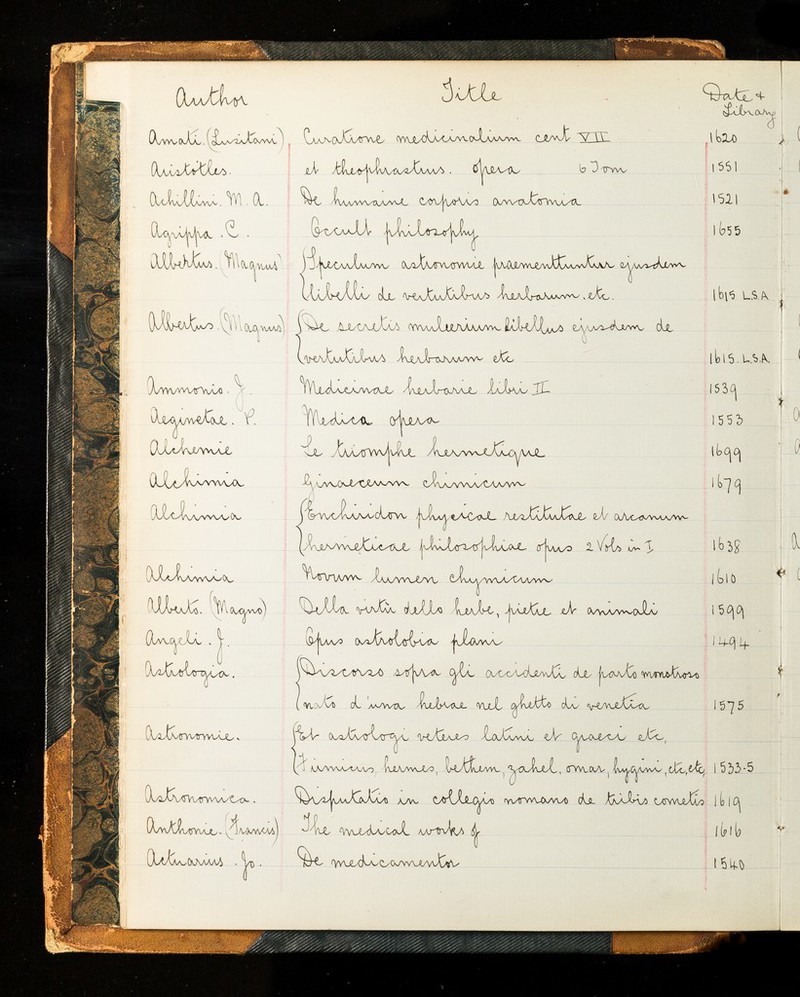 Author Title Date & Library
Amati. (Lusitani) Curatione medicinalium cent VII 1620
Aristotles. et theophrastus. Opera 6 Tom 1551
Achillini. M. A. De humaine corporis anatomia 1521
Agrippa. C. Occult philosophy 1655
Albertus. (Magnus) Speculum astronomie praementtuntur ejusdem
libelli de vertutibus herbarum. etc. 1615 L.S.A
Albertus. (Magnus) De secretis mulierium libellus ejusdem de
vertutibus herbarum etc 1615. L.S.A.
Ammonio. J. Medicinae herbarie libri II 1539
Aeginetae. P. Medica opera 1553
Alchemie Le triomphe hermetique 1699
Alchimia Ginaeceum chimicum 1679
Alchimia Enchiridon physicae restitutae et arcanum
hermeticae philosophiae opus 2 Vols in I 1638
Alchimia Novum lumen chymicum 1610
Alberto. (Magno) Della virtu dello herbe, pietre et animali 1599
Angeli. J. Opus astrolobia plani 1494
Astrologia. Discorso sopra gli accidenti de parto monstroso
nato d'una hebrae nel ghetto di venetia 1575
Astronomie. Et astrologi veteres latini et graeci etc,
Firmicus, hermes, bethem, zahel, omar, hygini, etc, etc, 1533-5
Astronomica. Disputatio in collegio romano de tribis cometis 1619
Anthonie. (Francis) The medical works of 1616
Actuarius. Jo. De medicamentor 1540